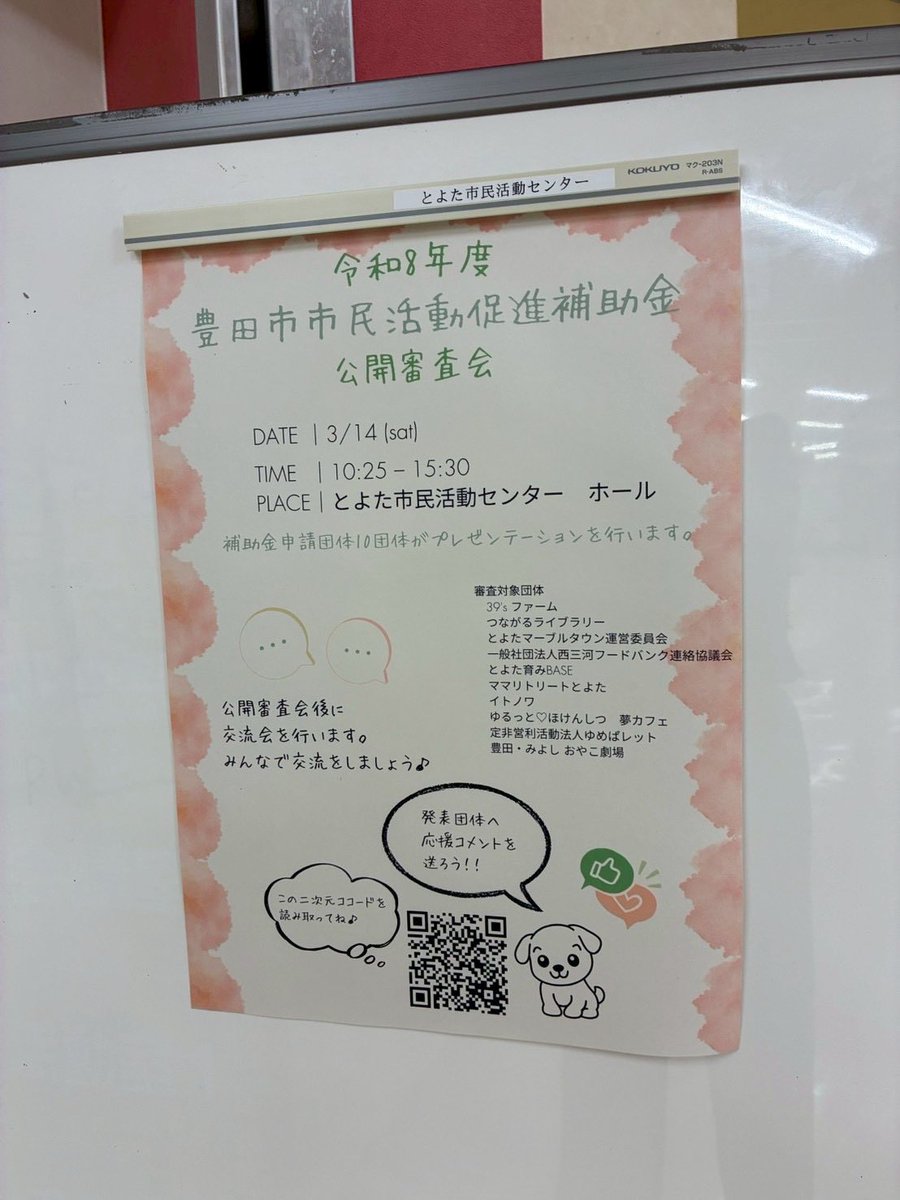 KOKUYO マク-203N
R-ABS
とよた市民活動センター
令和8年度
豊田市市民活動促進補助金
公開審査会
DATE | 3/14 (sat)
TIME | 10:25 – 15:30
PLACE | とよた市民活動センター ホール
補助金申請団体10団体がプレゼンテーションを行います。
審査対象団体
39's ファーム
つながるライブラリー
とよたマーブルタウン運営委員会
一般社団法人西三河フードバンク連絡協議会
とよた育みBASE
ママリトリートとよた
イトノワ
ゆるっと♡ほけんしつ 夢カフェ
定非営利活動法人ゆめぱレット
豊田・みよし おやこ劇場
公開審査会後に
交流会を行います。
みんなで交流をしましょう♪
発表団体へ
応援コメントを
送ろう!!
この二次元ココードを
読み取ってね♪